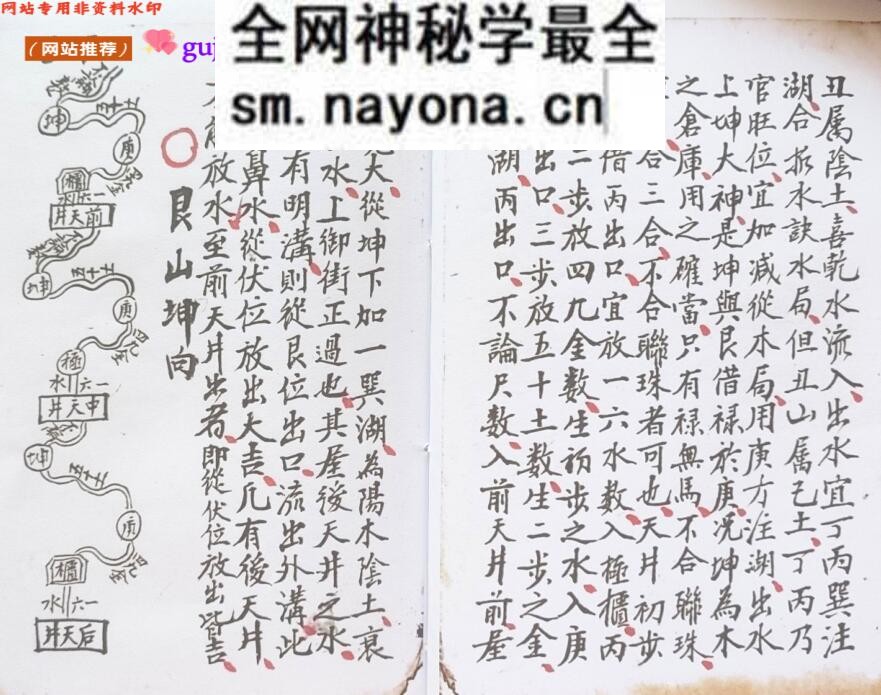 网站专用非资料水印
（网站推荐）
guj
全网神秘学最全
sm.nayona.cn
丑属陰土喜乾水流入出水宜丁丙巽注
湖合拆水訣水局但丑山属己土丁丙乃
官旺位宜加减從本局用庚方注湖出水
上坤大神是坤與艮借禄於庚况坤為木
之倉庫用之確當只有禄無馬不合聯珠
合三合不合聯珠者可也天井初步
借丙出口宜放一六水數入極櫃丙
二步放四九金數生初步之水入庚
出口三步放五十土數生二步之金
湖丙出口不論尺數入前天井前屋
大從坤下加一巽湖為陽木陰土衰
水上御街正過也其屋後天井之水
有明溝則從艮位出口流出外溝此
鼻水從伏位放出大吉凡有後天井
放水至前天井出者即從伏位放出皆吉
艮山坤向
坤
五十土
庚
四九金
櫃
水一六
前天井
坤
五十土
庚
四九金
極
水一六
中天井
坤
五十土
庚
四九金
櫃
水一六
后天井